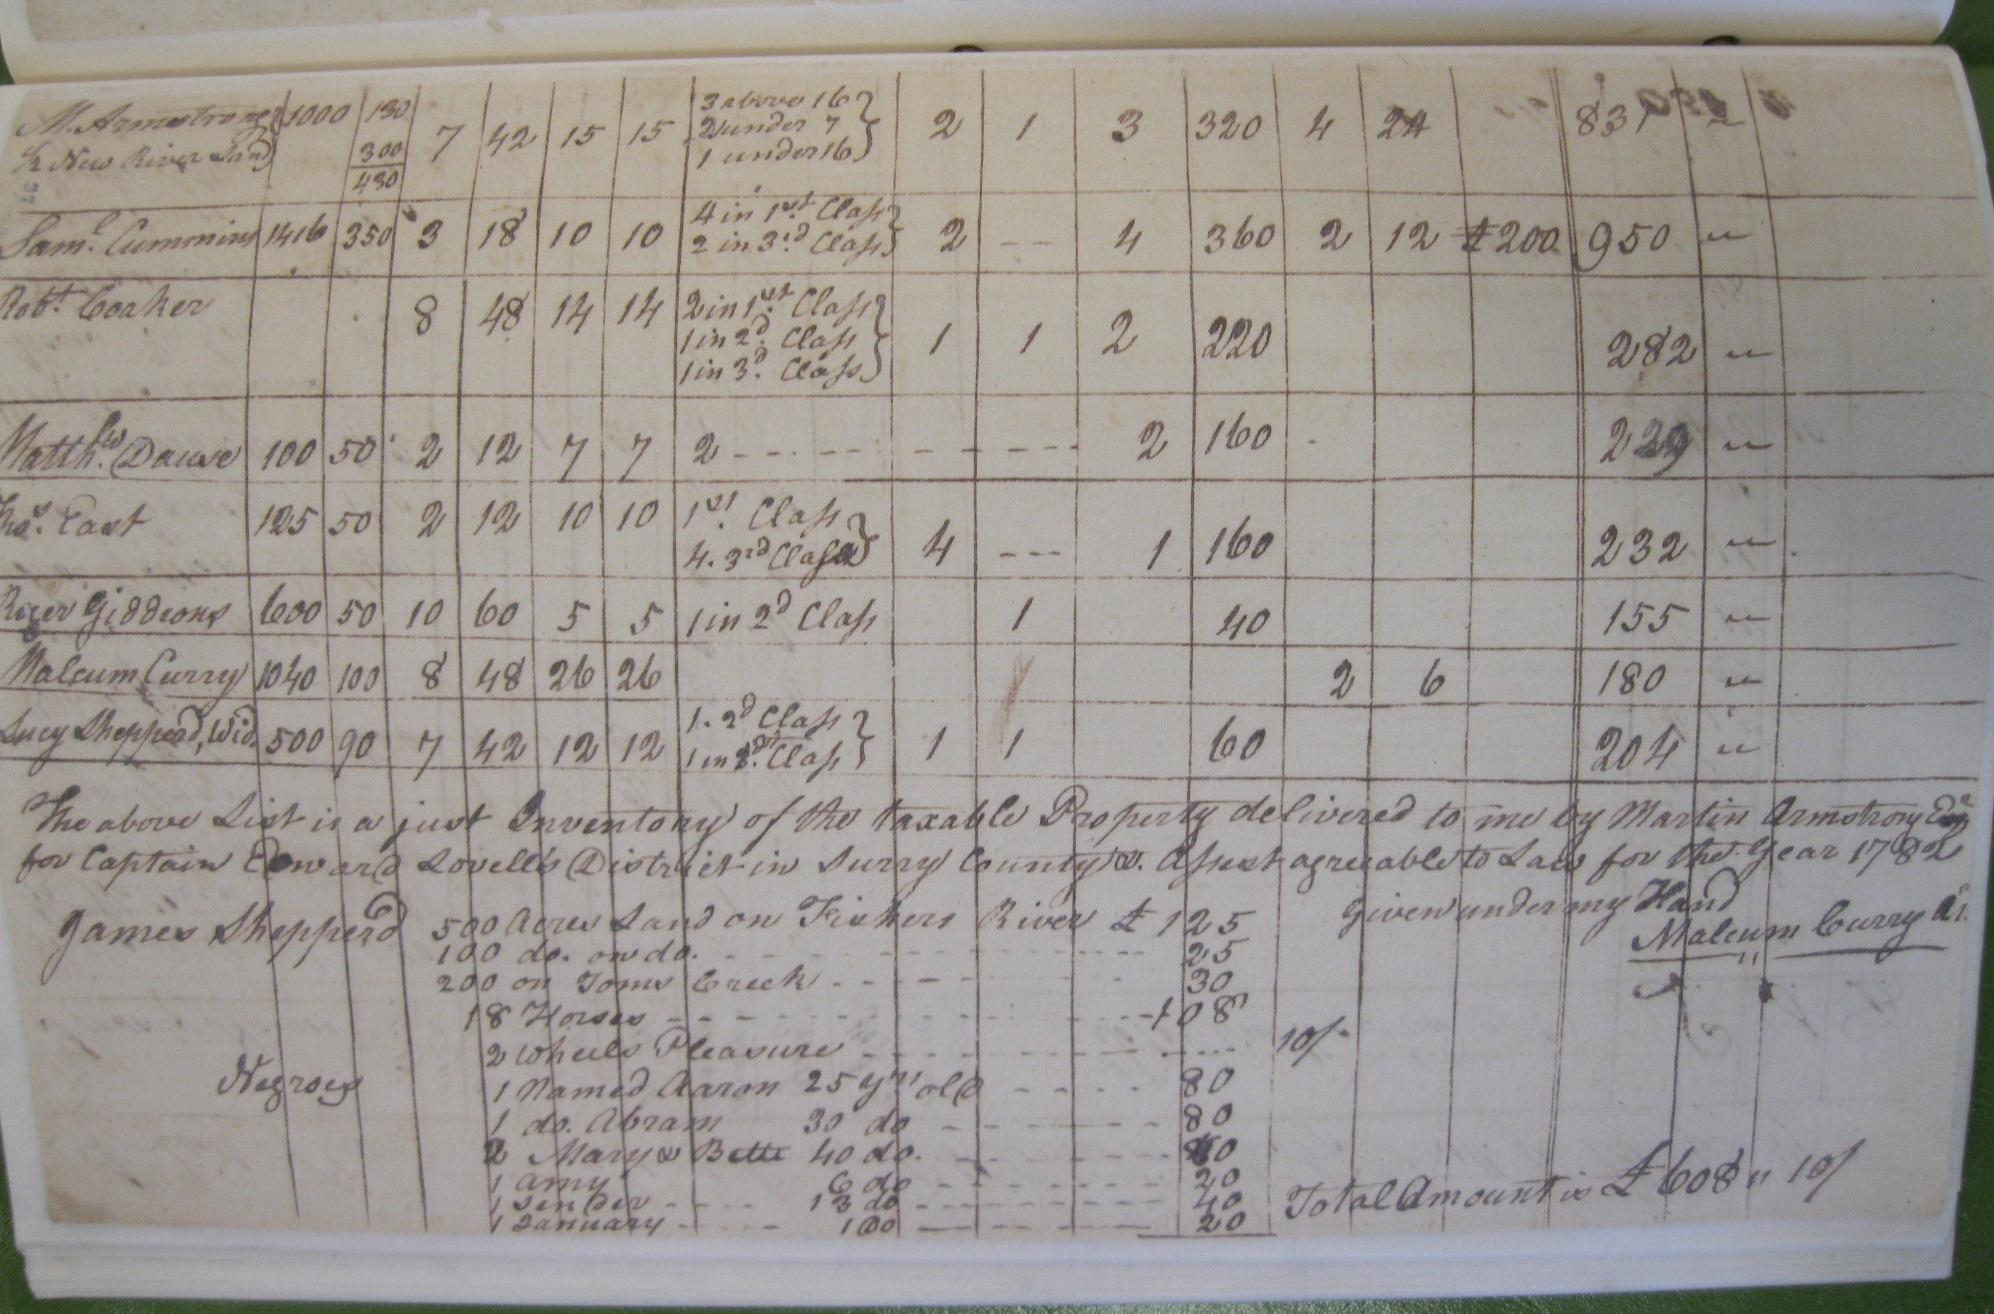 M. Armstrong 1000 130 7 42 15 15 3 above 16 2 1 3 320 4 24 831
& New River Land 300 2 under 7
430 1 under 16
Sam.l Cummins 1416 350 3 18 10 10 4 in 1st Class 2 -- 4 360 2 12 £200 950 "
2 in 3.d Class
Rob.t Coaker 8 48 14 14 2 in 1st Class 1 1 2 220 282 "
1 in 2d. Class
1 in 3d. Class
Matth.w Dause 100 50 2 12 7 7 2 - - - - - - - - - 2 160 229 "
Tho.s East 125 50 2 12 10 10 1st. Class
4. 3rd Class 4 --- 1 160 232 "
Giddeons 600 50 10 60 5 5 1 in 2d Class 1 40 155 "
Malcum Curry 1040 100 8 48 26 26 2 6 180 "
Lucy Shepperd, Wid. 500 90 7 42 12 12 1. 2d Class 1 1 60 204 "
1 in Class
The above List is a just Inventory of the taxable Property delivered to me by Martin Armstrong Esqr
for Captain Edward Lovells District in Surry County & Assest agreeable to Law for the Year 1782
Given under my Hand
Malcum Curry
James Shepperd 500 Acres Land on Fishers River £ 125
100 do. on do. - - - - - 25
200 on Toms Creek - - - - 30
18 Horses - - - - - 108
2 Wheels Pleasure - - - - - 10/-
Negroes 1 Named Aaron 25 yrs old - - - - 80
1 do. Abram 30 do - - - - 80
2 Mary & Bette 40 do. - - - -
1 Amy 6 do - - - - 20
1 - - - - 13 do - - - - 40
1 January - - - - 100 - - - - 20
Total Amount is £ 608 " 10/